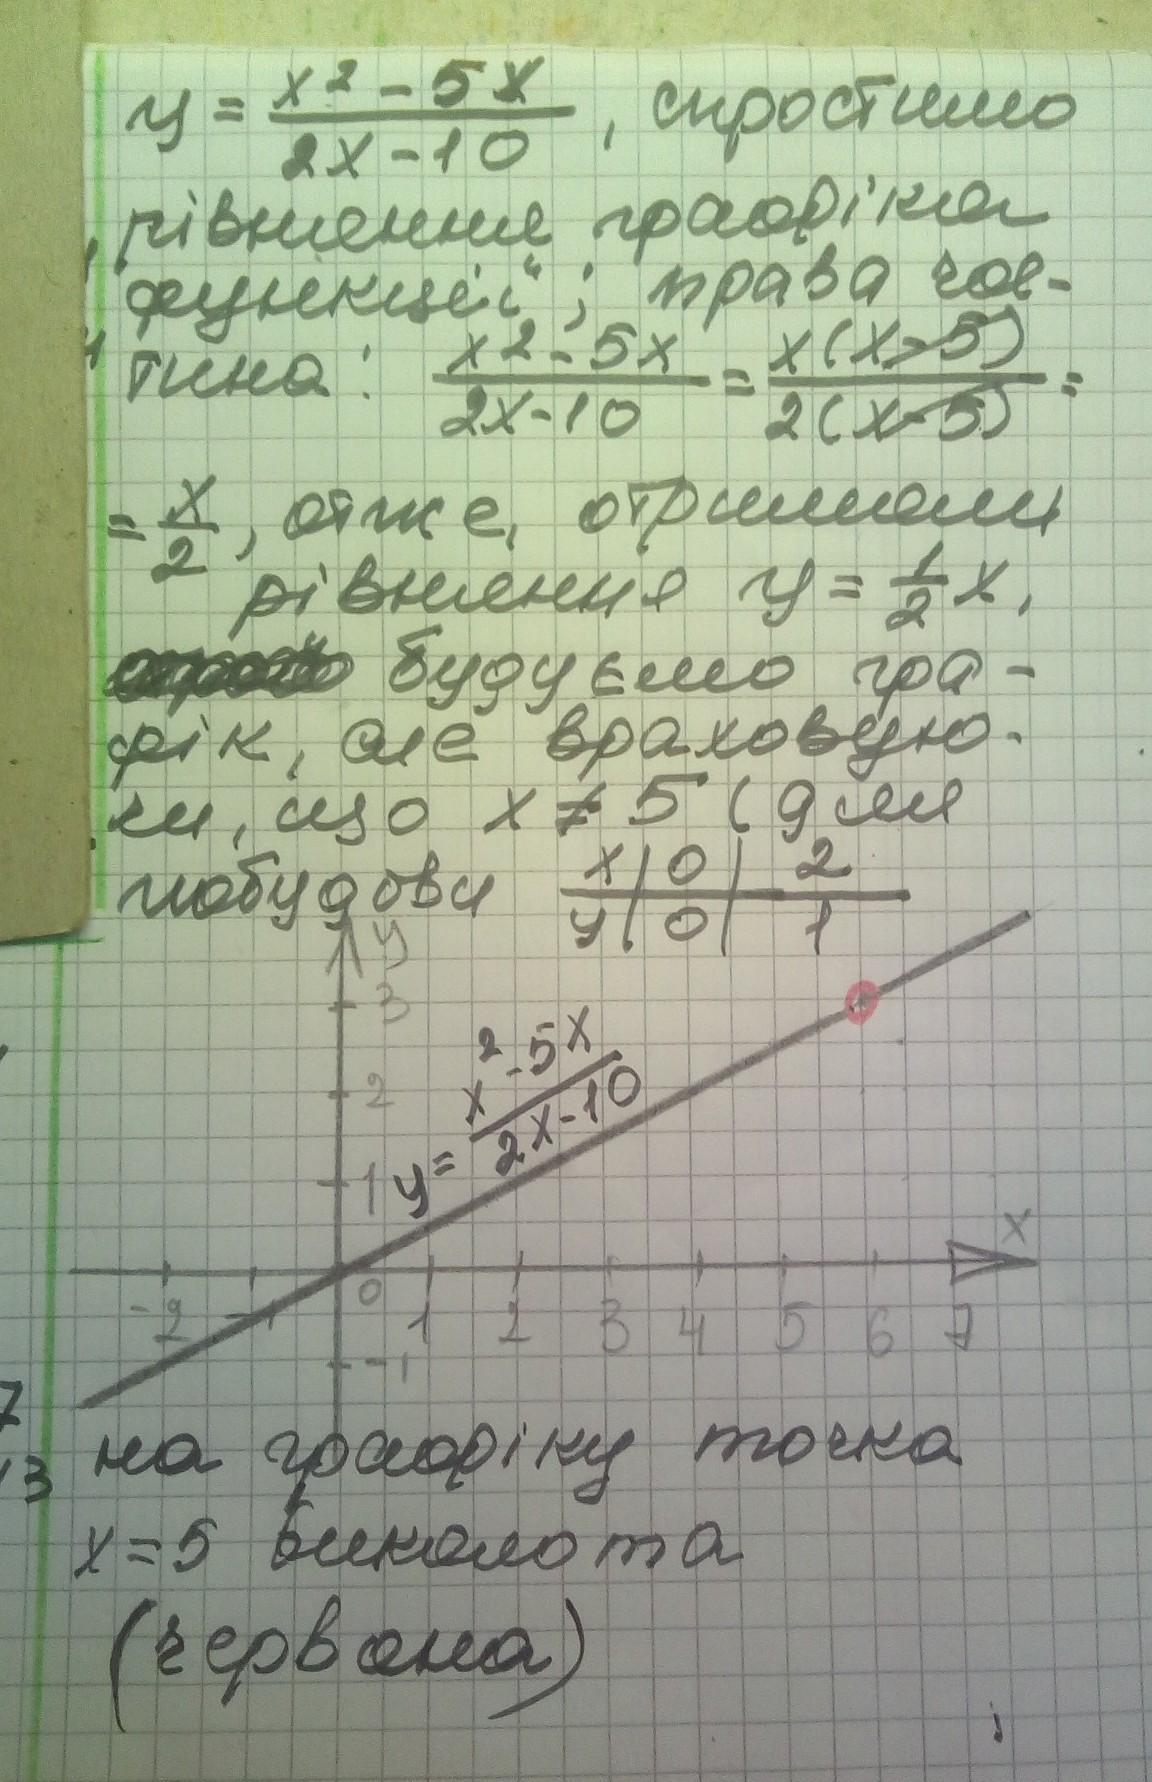 y = (x² - 5x)/(2x - 10), спростимо
"рівняння графіка
функції"; права час-
тина: (x² - 5x)/(2x - 10) = x(x-5)/2(x-5) =
= x/2, отже, отримали
рівняння y = 1/2 x,
будуємо гра-
фік, але враховую-
чи, що x ≠ 5 (для
побудови x | 0 | 2
y | 0 | 1
y
3
2
1
y = (x² - 5x)/(2x - 10)
x
-2 -1 0 1 2 3 4 5 6 7
-1
на графіку точка
x = 5 виколота
(червона)